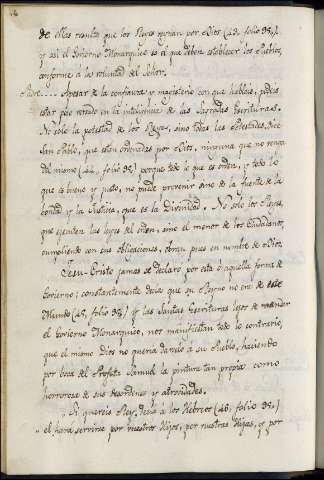 de ellas resulta que los Reyes reynan por Dios (43, folio 38,)
y asi el Govierno Monarquico es el que deben establecer los Pueblos,
conforme á la voluntad del Señor.
Apesar de la confianza y magisterio con que hablais, podeis
estar poco versado en la inteligencia de las Sagradas Escrituras.
No solo la potestad de los Reyes, sino todas las Potestades, dice
San Pablo, que estan ordenadas por Dios, ninguna que no venga
del mismo (44, folio 38) porque todo lo que es orden, y todo lo
que es bueno y justo, no puede provenir sino de la fuente de la
bondad y la Justicia, que es la Divinidad. No solo los Reyes,
que executan las leyes del orden, sino el menor de los Ciudadanos,
cumpliendo con sus obligaciones, obran pues en nombre de Dios.
Jesu-Cristo jamas se declaró por esta ó aquella forma de
Govierno; constantemente decia que su Reyno no era de este
Mundo (45, folio 38) y las Santas Escrituras lejos de
el Govierno Monarquico, nos manifiestan todo lo contrario,
que el mismo Dios no queria darselo á su Pueblo, haciendo
por boca del Profeta Samuel la pintura tan propia como
horrorosa de sus desordenes y atrocidades.
" Si quereis Rey, decia á los Hebreos (46, folio 38,)
" el hará servirse por vuestros Hijos, por vuestras Hijas, y por